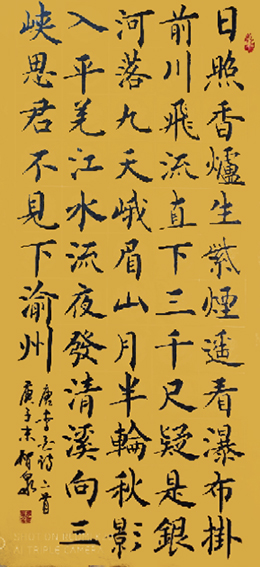 日照香爐生紫煙遥看瀑布掛
前川飛流直下三千尺疑是銀
河落九天峨眉山月半輪秋影
入平羌江水流夜發清溪向三
峽思君不見下渝州
唐李白诗二首
庚子末智泉
SHOT ON
AI TRIPLE CAMERA